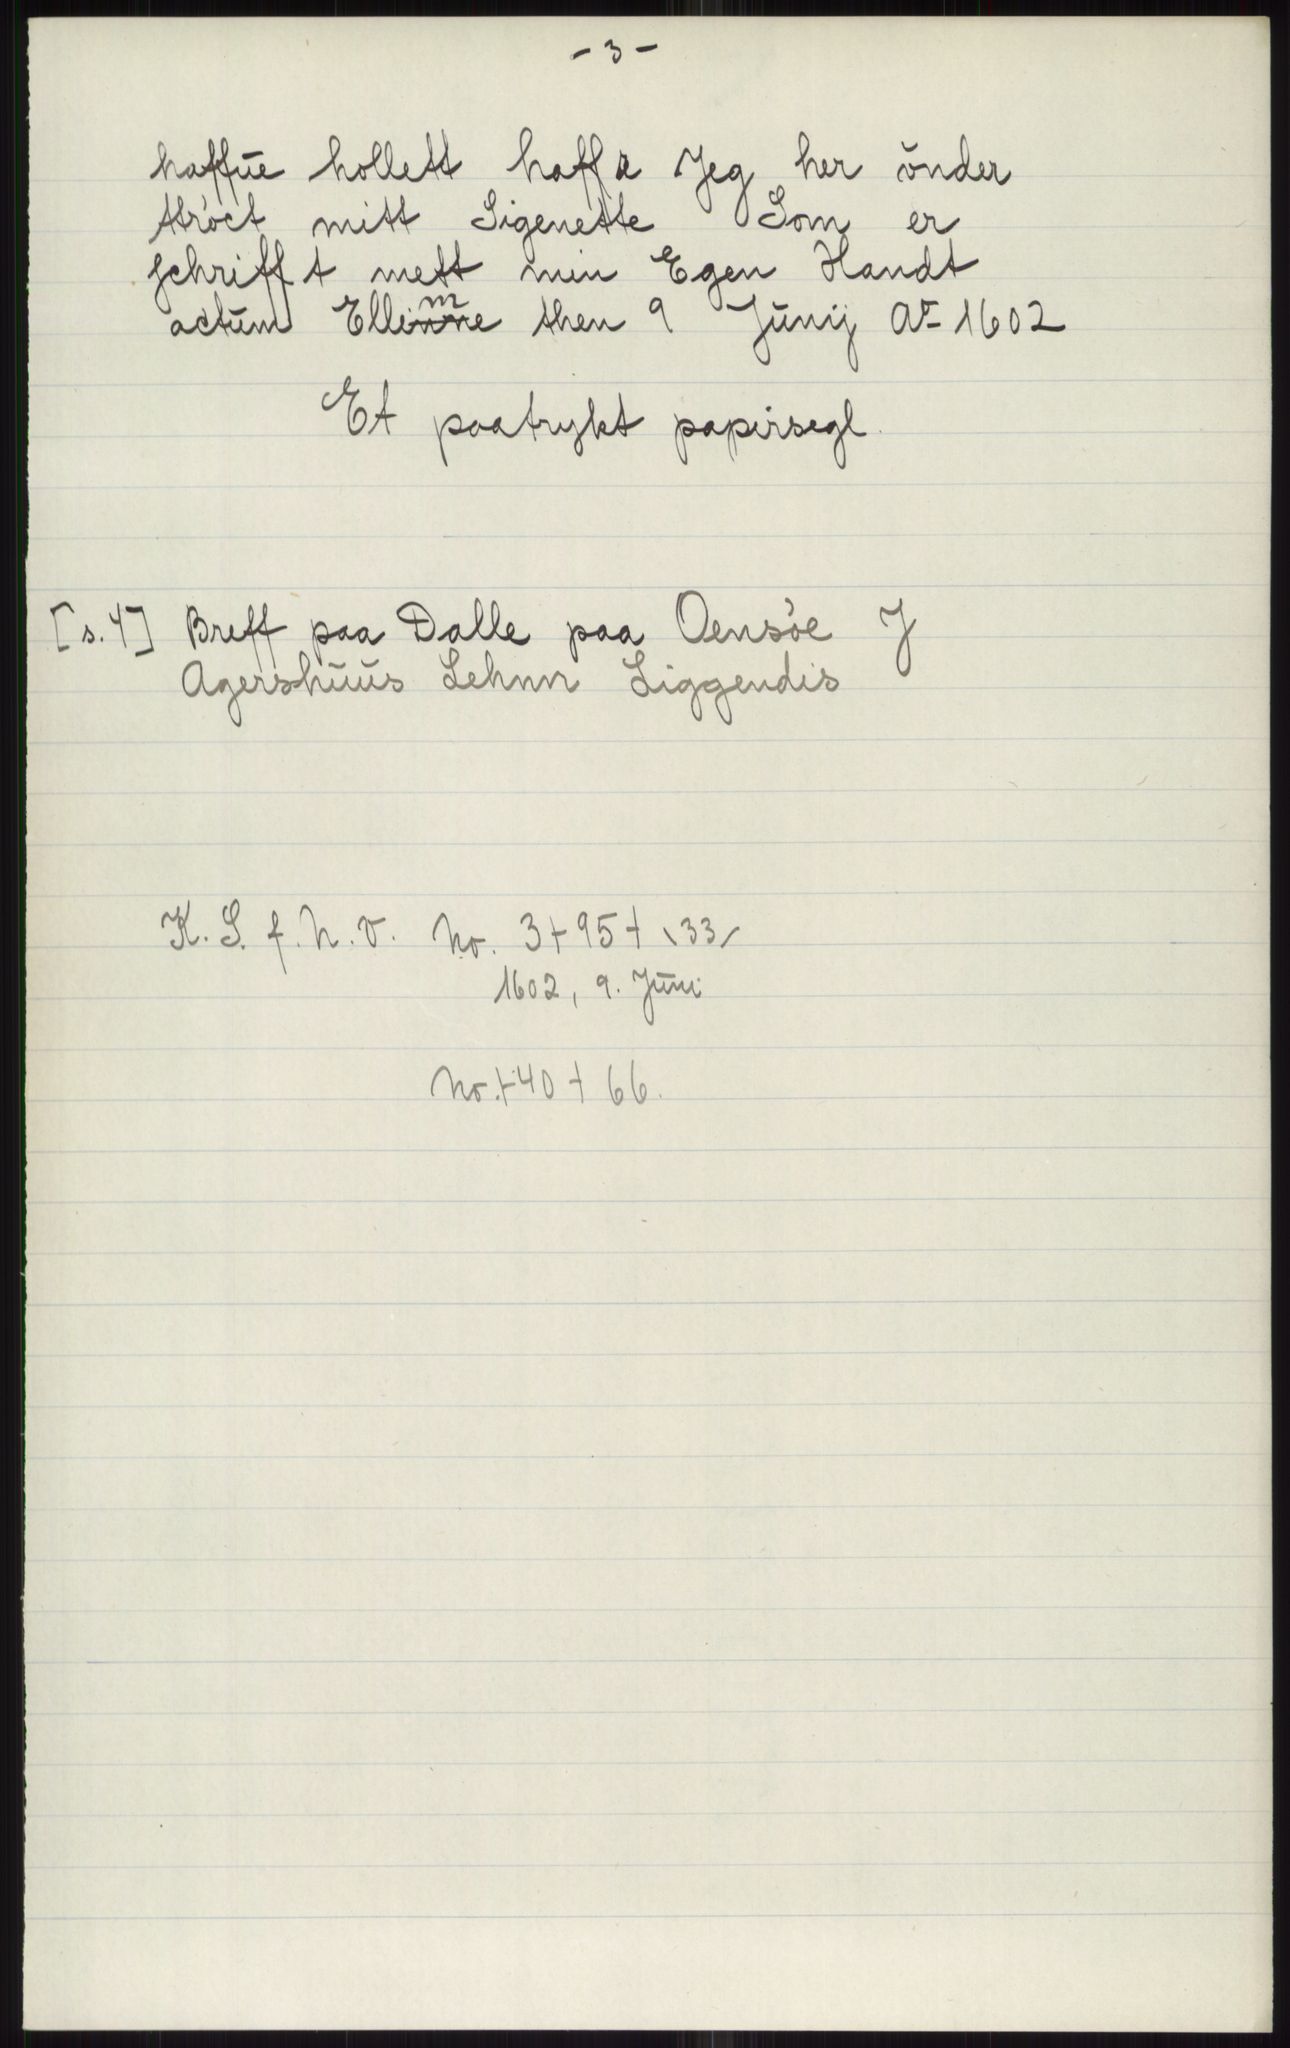 - 3 -
haffūe hollett haffe Jeg her ŭnder
ttrŏct mitt Sigenette Som er
schrifft mett min Egen Handt
actūm Ellinme then 9 Jūnij Ao 1602
Et paatrykt papirsegl.
[s. 4] Breff paa Dalle paa Oensŏe J
Agershūūs Lehnn Liggendis
K. S. f. h. v. No. 3 + 95 + \33/
1602, 9. Jūni
No. + 40 + 66.